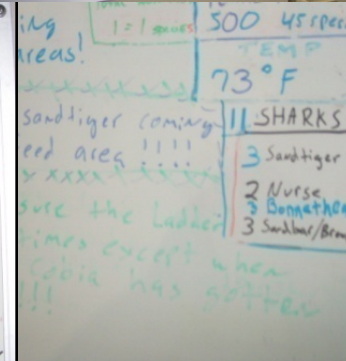 ing
areas!
1 = 1
500 45 spec
TEMP
73°F
sandtiger coming
eed area !!!!
11 SHARKS
3 Sandtiger
2 Nurse
3 Bonnethe
3 Sandbar/Brow
sure the Ladder
times except when
Cobia has gotten
!!!